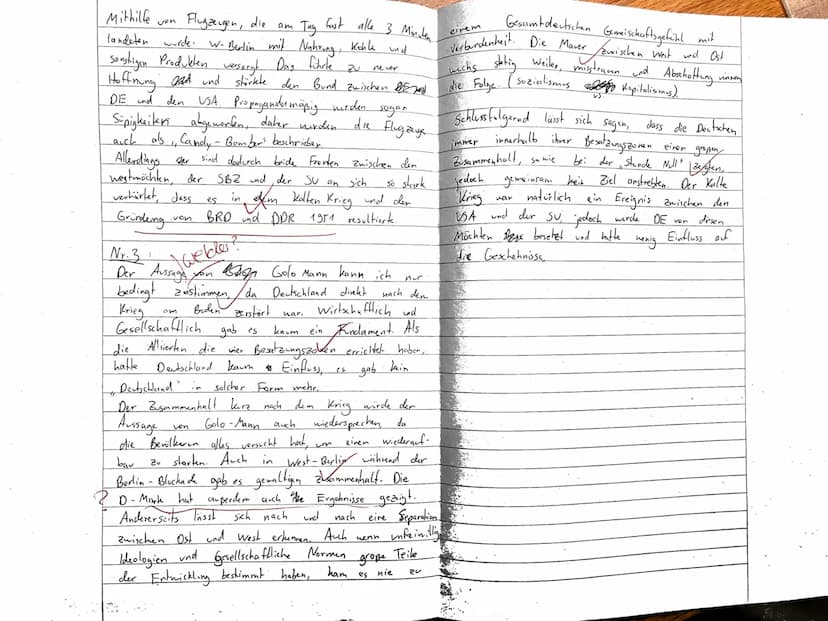 Mithilfe von Flugzeugen, die am Tag fast alle 3 Minuten
landeten wurde W-Berlin mit Nahrung, Kohle und
sonstigen Produkten versorgt. Das führte zu neuer
Hoffnung und stärkte den Bund zwischen
DE und den USA. Propagandamäßig wurden sogar
Süßigkeiten abgeworfen, daher wurden die Flugzeuge
auch als „Candy-Bomber" beschrieben.
Allerdings sind dadurch beide Fronten zwischen den
westmächten, der SBZ und der SU an sich so stark
verhärtet, dass es in dem kalten Krieg und der
Gründung von BRD und DDR 1951 resultierte.
Nr. 3:
welcher?
Der Aussage von Golo Mann kann ich nur
bedingt zustimmen, da Deutschland direkt nach dem
Krieg am Boden zerstört war. Wirtschaftlich und
Gesellschaftlich gab es kaum ein Fundament. Als
die Alliierten die vier Besatzungszonen errichtet haben,
hatte Deutschland kaum Einfluss, es gab kein
„Deutschland" in solcher Form mehr.
Der Zusammenhalt kurz nach dem Krieg würde der
Aussage von Golo-Mann auch wiedersprechen, da
die Bevölkerun alles versucht hat, um einen wiederauf-
bau zu starten. Auch in West-Berlin während der
Berlin-Blockade gab es gewaltigen Zusammenhalt. Die
? D-Mark hat außerdem auch Ergebnisse gezeigt.
Andererseits lässt sich nach und nach eine Separation
zwischen Ost und West erkennen. Auch wenn unfreiwillig
Ideologien und Gesellschaftliche Normen große Teile
der Entwicklung bestimmt haben, kam es nie zu
einem Gesamtdeutschen Gemeischaftsgefühl mit
verbundenheit. Die Mauer zwischen West und Ost
wuchs stetig weiter, misstrauen und Abschottung waren
die Folge (sozialismus vs. Kapitalismus)
Schlussfolgernd lässt sich sagen, dass die Deutschen
immer innerhalb ihrer Besatzungszonen einen großen
Zusammenhalt, sowie bei der „Stunde Null" zeigten,
jedoch gemeinsam kein Ziel anstrebten. Der Kalte
Krieg war natürlich ein Ereignis zwischen den
USA und der SU, jedoch wurde DE von diesen
Mächten besetzt und hatte wenig Einfluss auf
die Geschehnisse.